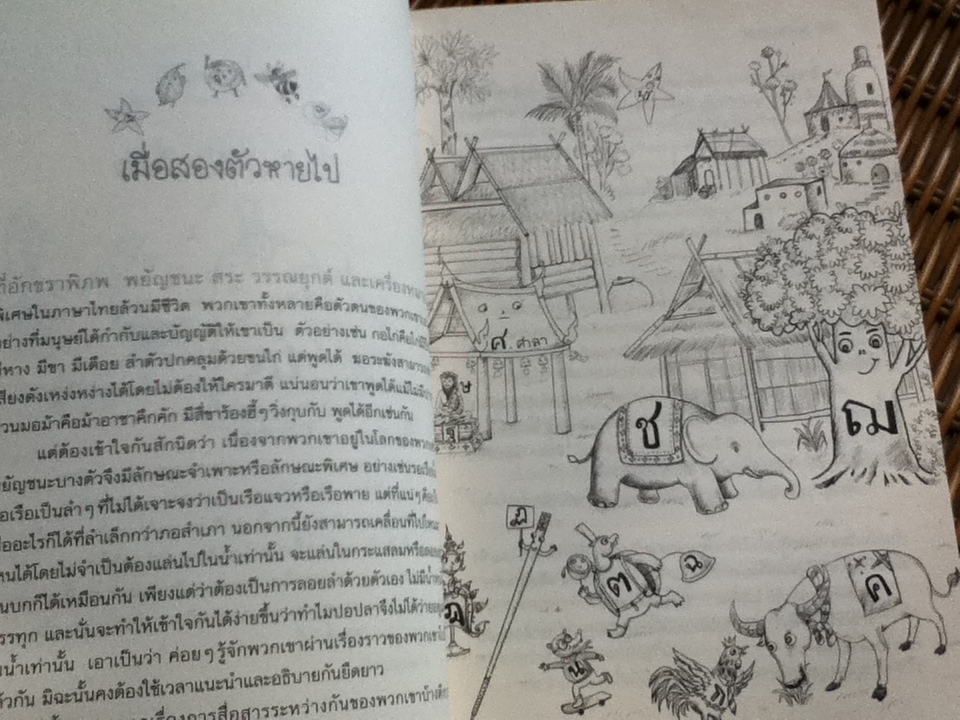 เมื่อสองตัวหายไป
ที่อักขราพิภพ พยัญชนะ สระ วรรณยุกต์ และเครื่องหมาย
พิเศษในภาษาไทยล้วนมีชีวิต พวกเขาทั้งหลายคือตัวตนของพวกเขา
อย่างที่มนุษย์ได้กำกับและบัญญัติให้เขาเป็น ตัวอย่างเช่น กอไก่คือไก่
มีหาง มีขา มีเดือย ลำตัวปกคลุมด้วยขนไก่ แต่พูดได้ ฆอระฆังสามารถ
เสียงดังเหง่งหง่างได้โดยไม่ต้องให้ใครมาตี แน่นอนว่าเขาพูดได้แม้ไม่
ส่วนมอม้าคือม้าอาชาคึกคัก มีสี่ขาร้องฮี้ๆ วิ่งกุบกับ พูดได้อีกเช่นกัน
แต่ต้องเข้าใจกันสักนิดว่า เนื่องจากพวกเขาอยู่ในโลกของพวกเขา
พยัญชนะบางตัวจึงมีลักษณะจำเพาะหรือลักษณะพิเศษ อย่างเช่นรอเรือ
คือเรือเป็นลำๆ ที่ไม่ได้เจาะจงว่าเป็นเรือแจวหรือเรือพาย แต่ที่แน่ๆ คือ
อะไรก็ได้ที่ลำเล็กกว่าภอสำเภา นอกจากนี้ยังสามารถเคลื่อนที่ไปไหน
ไหนได้โดยไม่จำเป็นต้องแล่นไปในน้ำเท่านั้น จะแล่นในกระแสลมหรือ
บนบกก็ได้เหมือนกัน เพียงแต่ว่าต้องเป็นการลอยลำด้วยตัวเอง ไม่มี
บรรทุก และนั่นจะทำให้เข้าใจกันได้ง่ายขึ้นว่าทำไมปอปลาจึงไม่ได้ว่าย
ในน้ำเท่านั้น เอาเป็นว่า ค่อยๆ รู้จักพวกเขาผ่านเรื่องราวของพวกเขา
ด้วยกัน มิฉะนั้นคงต้องใช้เวลาแนะนำและอธิบายกันยืดยาว
เรื่องการสื่อสารระหว่างกันของพวกเขาบ้าง
ศ ศาลา
ษ
ฐ
ช
ฌ
ฎ
ต
ฉ
ค
น
ก